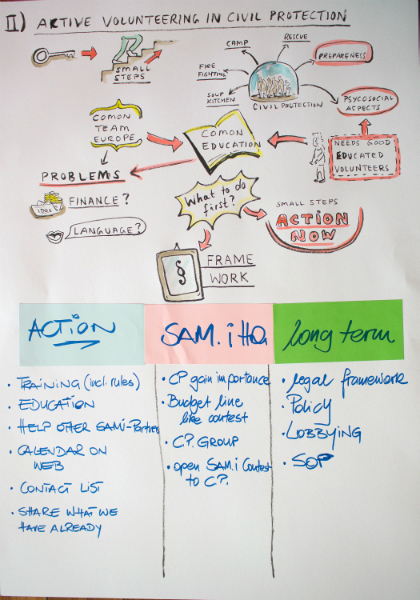 II) ACTIVE VOLUNTEERING IN CIVIL PROTECTION
SMALL
STEPS
CAMP
RESCUE
FIRE
FIGHTING
SOUP
KITCHEN
CIVIL PROTECTION
PREPARENESS
PSYCOSOCIAL
ASPECTS
COMON
TEAM
EUROPE
COMON
EDUCATION
NEEDS GOOD
EDUCATED
VOLUNTEERS
PROBLEMS
FINANCE?
LANGUAGE?
What to do
first?
SMALL STEPS
ACTION
NOW
§
FRAME
WORK
ACTION
• TRAINING (incl. rules)
• EDUCATION
• HELP OTHER SAMI-Partner
• CALENDAR ON
WEB
• CONTACT LIST
• SHARE WHAT WE
HAVE ALREADY
SAM.i HQ
• CP gain importance
• Budget line
like contest
• C.P. GROUP
• open SAM.i Contest
to C.P.
long term
• legal framework
• Policy
• LOBBYING
• SOP